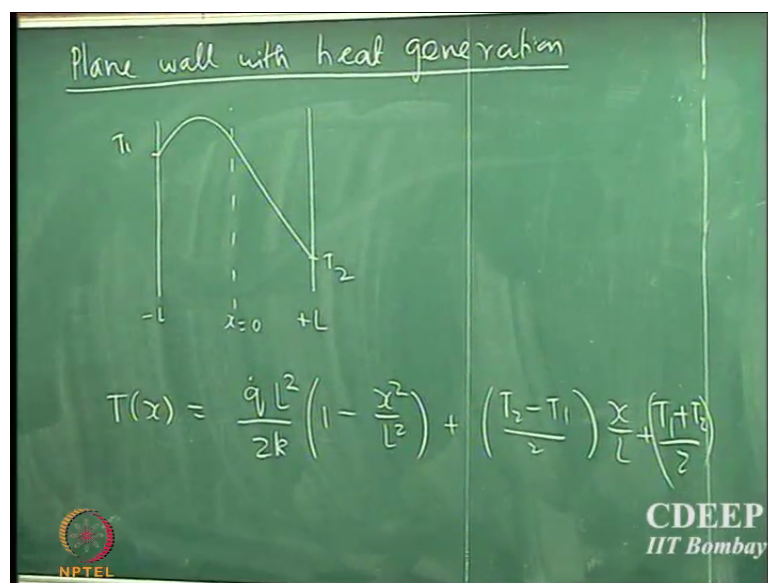 Plane wall with heat generation
T₁
T₂
-L x=0 +L
T(x) = q̇L²/2k (1 - x²/L²) + (T₂-T₁/2) x/L + (T₁+T₂/2)
CDEEP
IIT Bombay
NPTEL